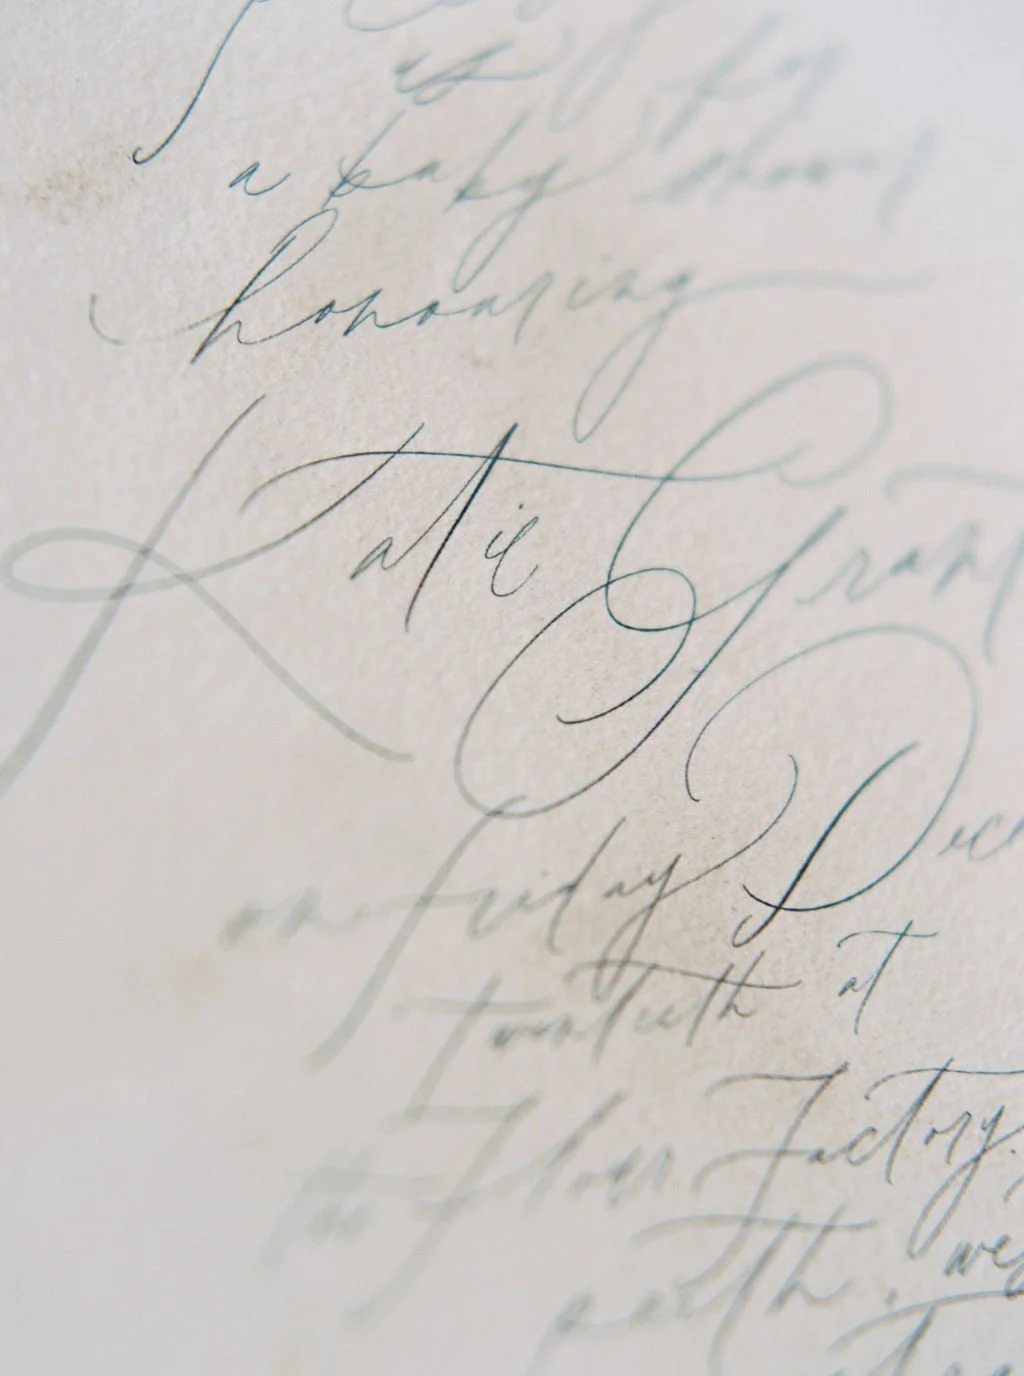 us for
a baby shower
honouring
Katie Grant
on Friday Dece
twentieth at
the Flour Factory.
perth, wes